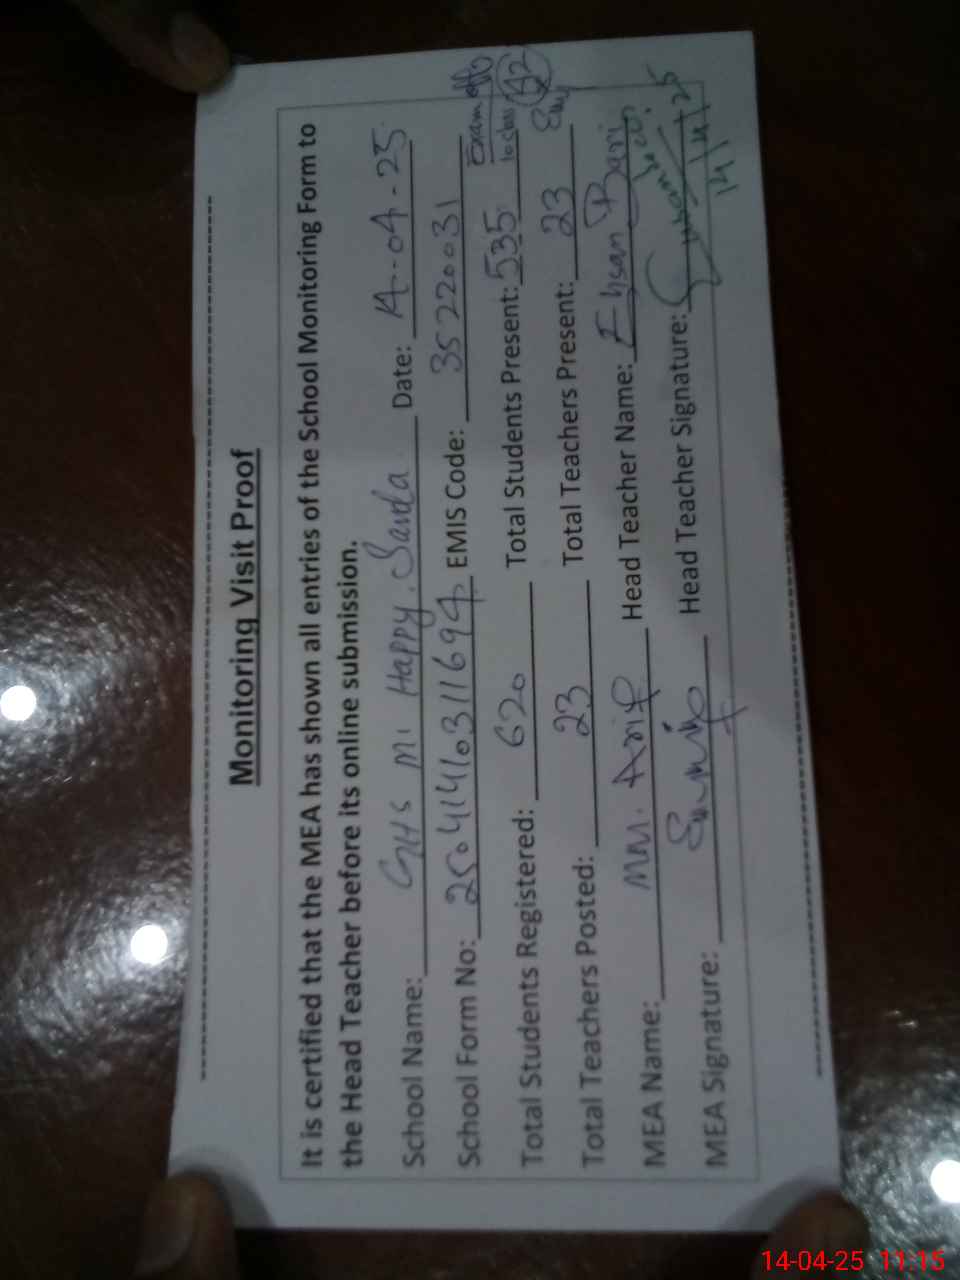 Monitoring Visit Proof
It is certified that the MEA has shown all entries of the School Monitoring Form to
the Head Teacher before its online submission.
School Name: GHS M1 Happy Sarda Date: 14-04-25
School Form No: 2504141031694 EMIS Code: 35220031
Exam
Total Students Registered: 620 Total Students Present: 535 10 class 42
Total Teachers Posted: 23 Total Teachers Present: 23
MEA Name: MM. Arif Head Teacher Name: Ehsan Bari
MEA Signature: Head Teacher Signature:
14/4/25
14-04-25 11:15